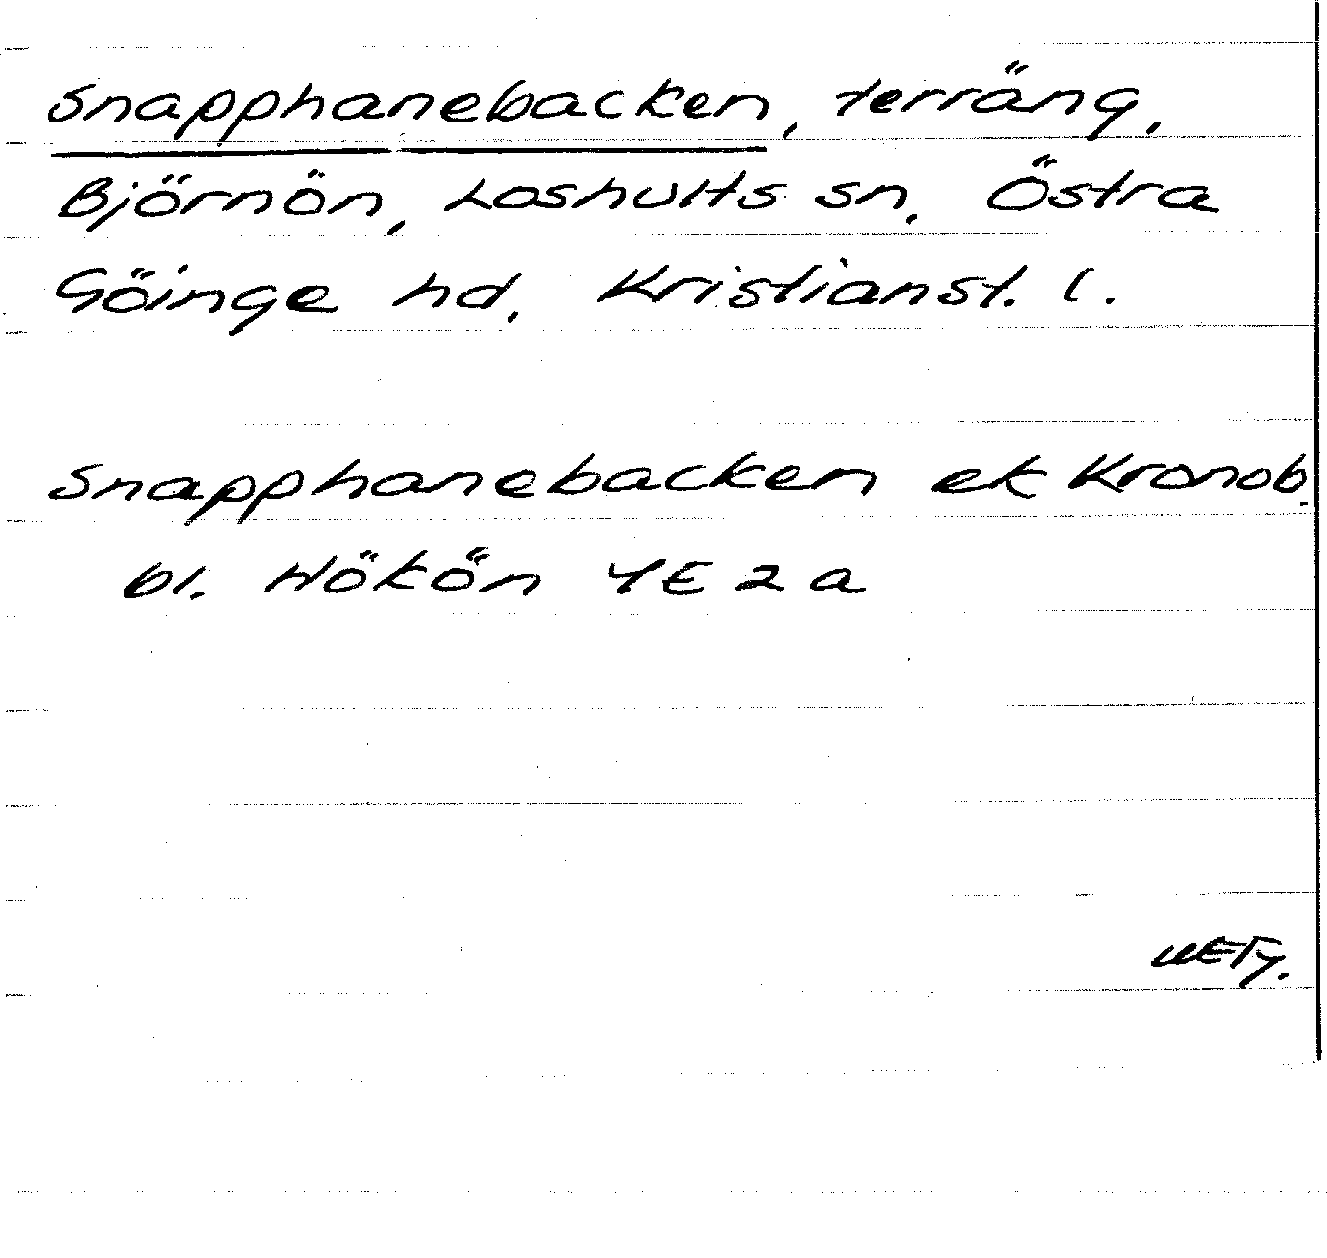 Snapphanebacken, terräng,
Björnön, Loshults sn, Östra
Göinge hd, Kristianst. l.
Snapphanebacken ek Kronob.
bl. Hökön 4E 2a